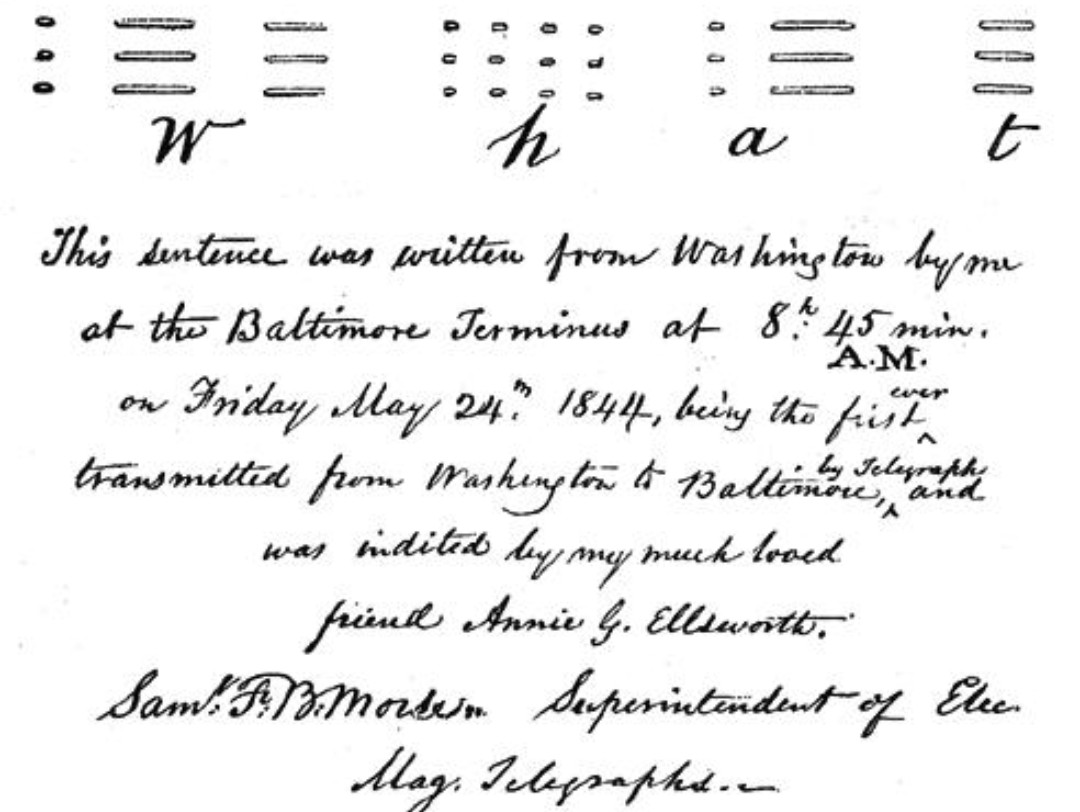 W h a t
This sentence was written from Washington by me
at the Baltimore Terminus at 8.h 45 min.
A.M.
on Friday May 24.th 1844, being the first ever
transmitted from Washington to Baltimore, by Telegraph and
was indited by my much loved
friend Annie G. Ellsworth.
Saml. F. B. Morse Superintendent of Elec.
Mag. Telegraphs.